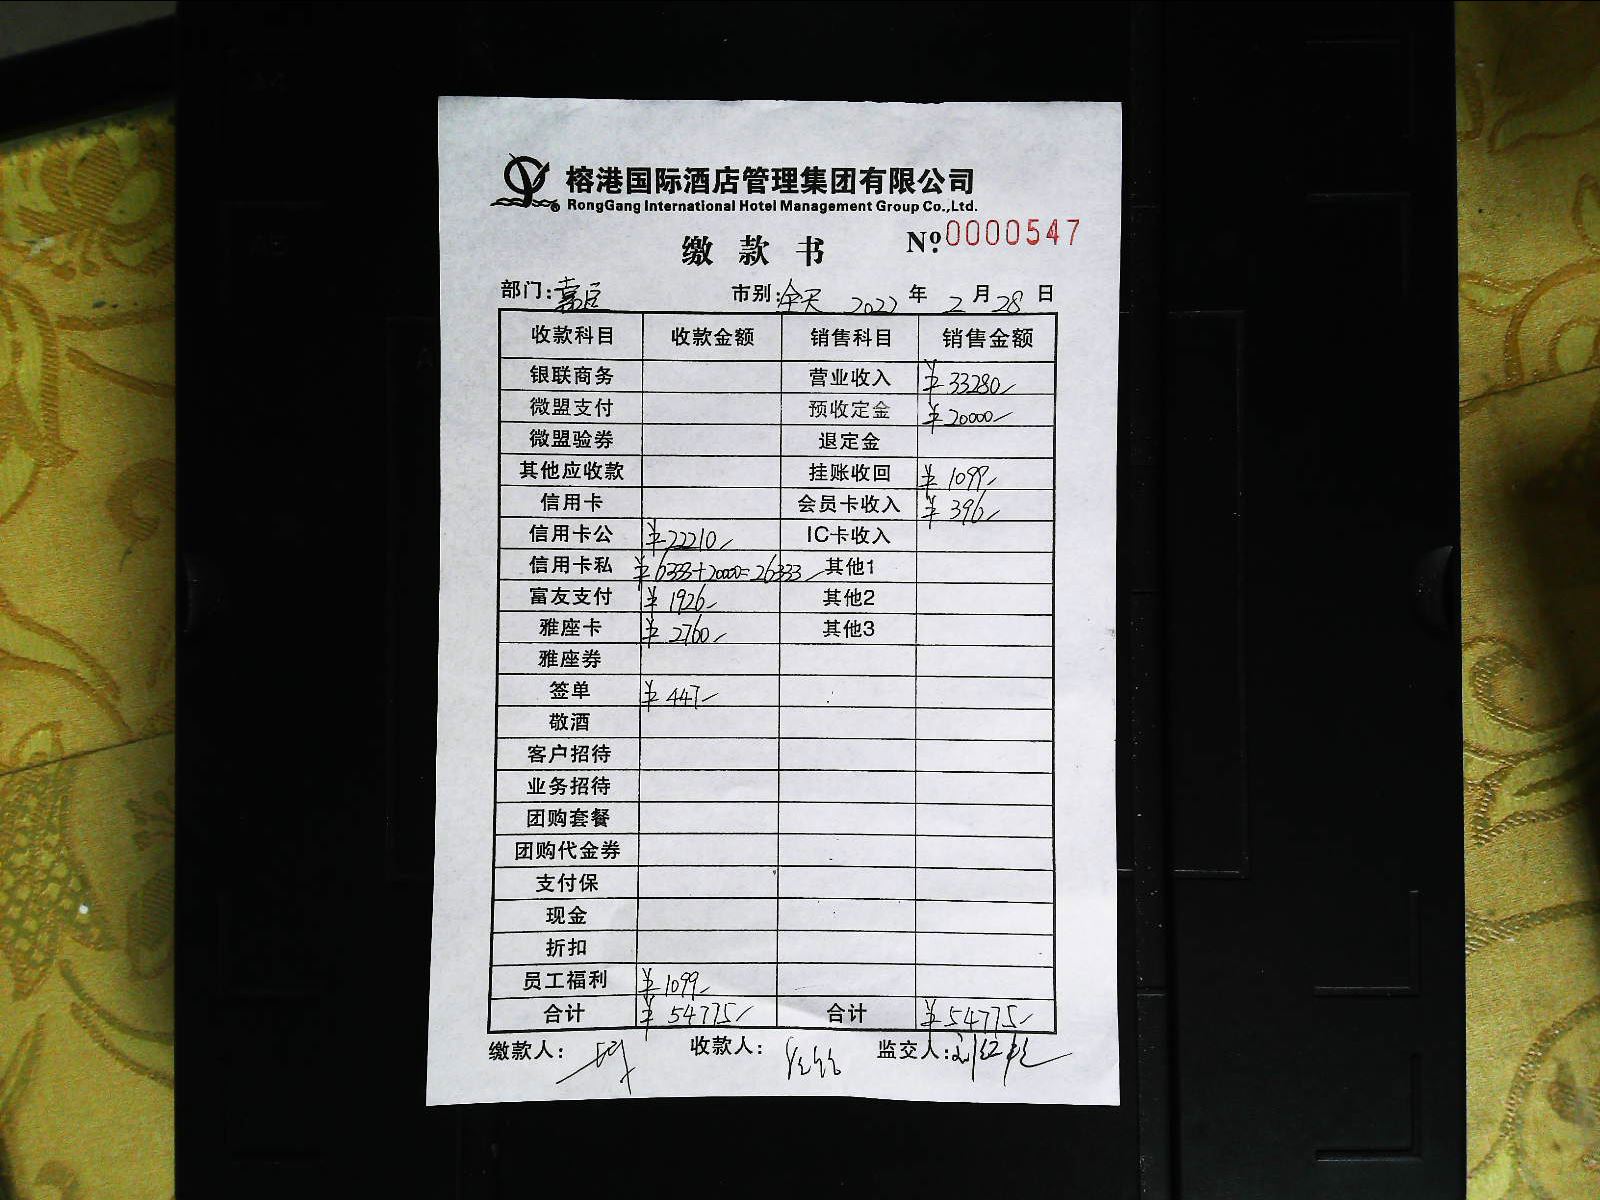 榕港国际酒店管理集团有限公司
RongGang International Hotel Management Group Co.,Ltd.
缴款书 Nº 0000547
部门: 市别:全天 2022年2月28日
收款科目 收款金额 销售科目 销售金额
银联商务 营业收入 ¥33280
微盟支付 预收定金 ¥20000
微盟验券 退定金
其他应收款 挂账收回 ¥1099
信用卡 会员卡收入 ¥396
信用卡公 ¥22210 IC卡收入
信用卡私 ¥6333+20000=26333 其他1
富友支付 ¥1926 其他2
雅座卡 ¥2760 其他3
雅座券
签单 ¥447
敬酒
客户招待
业务招待
团购套餐
团购代金券
支付保
现金
折扣
员工福利 ¥1099
合计 ¥54775 合计 ¥54775
缴款人: 收款人: 监交人: